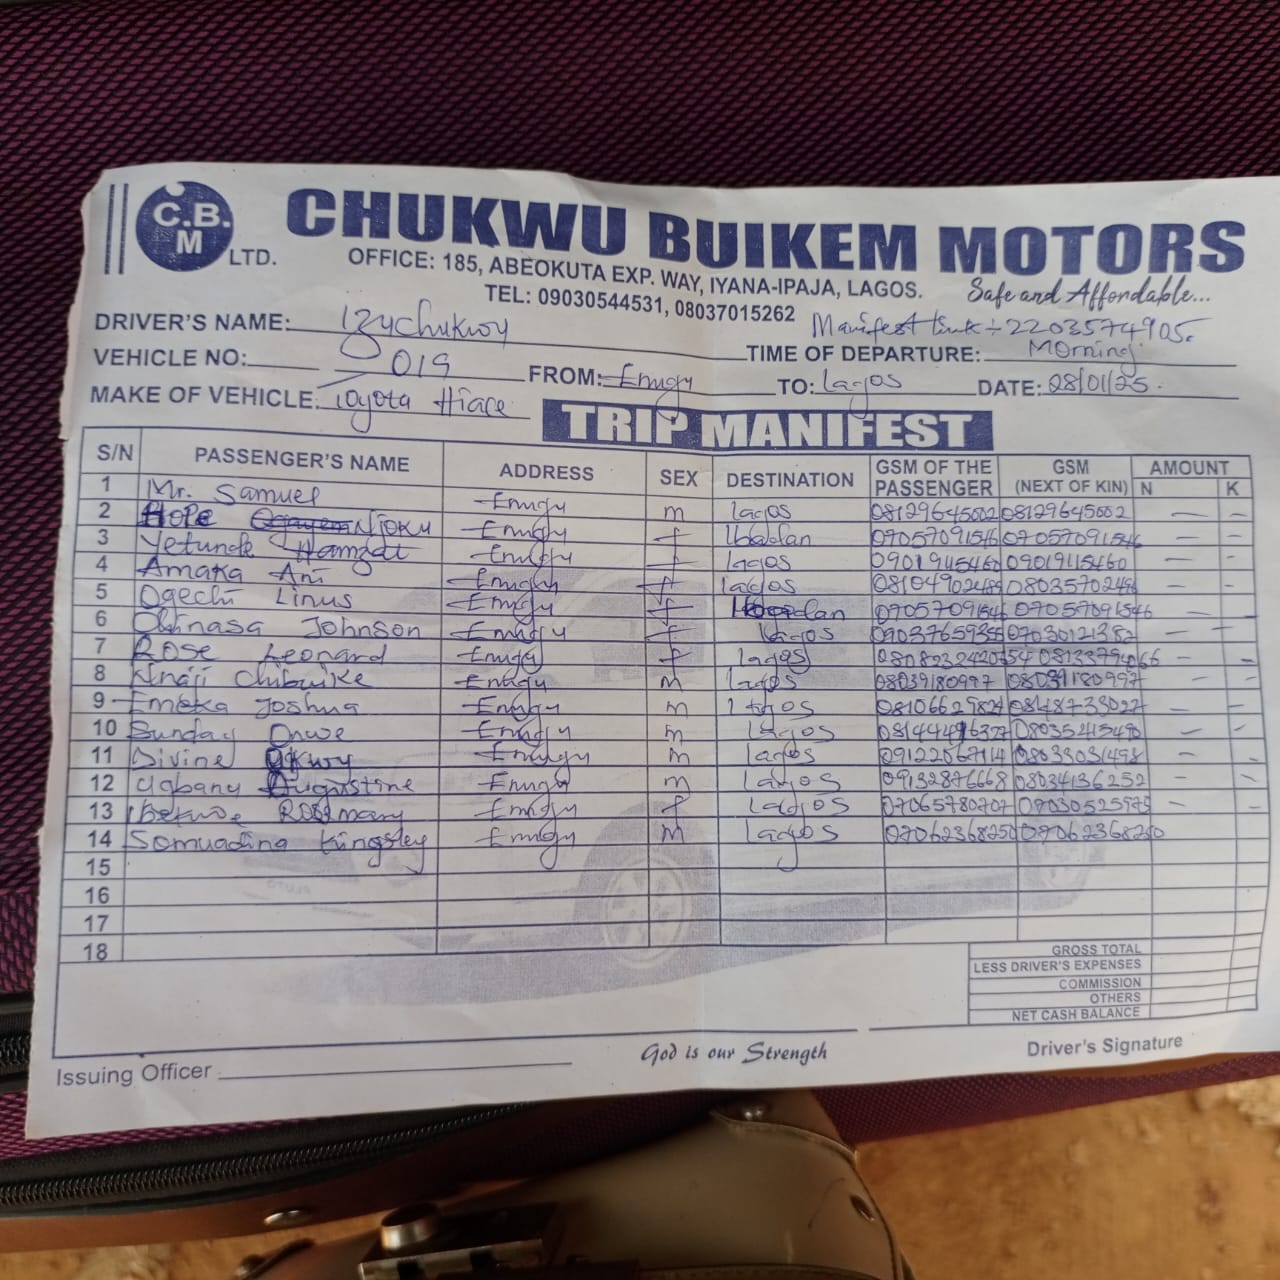 C.B.M LTD.
CHUKWU BUIKEM MOTORS
OFFICE: 185, ABEOKUTA EXP. WAY, IYANA-IPAJA, LAGOS.
Safe and Affordable...
TEL: 09030544531, 08037015262
Manifest link ÷ 2203574905.
DRIVER'S NAME: Izychukwy
TIME OF DEPARTURE: Morning
VEHICLE NO: 019 FROM: Enugy TO: Lagos DATE: 08/01/25.
MAKE OF VEHICLE: Toyota Hiace
TRIP MANIFEST
S/N PASSENGER'S NAME ADDRESS SEX DESTINATION GSM OF THE PASSENGER GSM (NEXT OF KIN) AMOUNT N K
1 Mr. Samuel Enugy m Lagos 08129645002 08129645002
2 Hope Njoku Enugy f 07057091546 07057091546
3 Yetunde Hamzat Enugy f Lagos 09019115460 09019115460
4 Amaka Ani Enugy f Lagos
5 Ogechi Linus Enugy f 07057091546 07057091546
6 Johnson Enugy f Lagos 07030121382
7 Rose Leonard Enugy f Lagos
8 Chibuike Enugy m Lagos 08039180997 08039180997
9 Emeka Joshua Enugy m Lagos
10 Sunday Onwe Enugy m Lagos
11 Divine Enugy m Lagos 09122067114 08033031498
12 Ugbany Augustine Enugy m Lagos 09132876668 08034136252
13 Rosemary Enugy f Lagos 07065780707
14 Somuadina Kingsley Enugy m Lagos 07062368250 07062368250
15
16
17
18
GROSS TOTAL
LESS DRIVER'S EXPENSES
COMMISSION
OTHERS
NET CASH BALANCE
Issuing Officer
God is our Strength
Driver's Signature